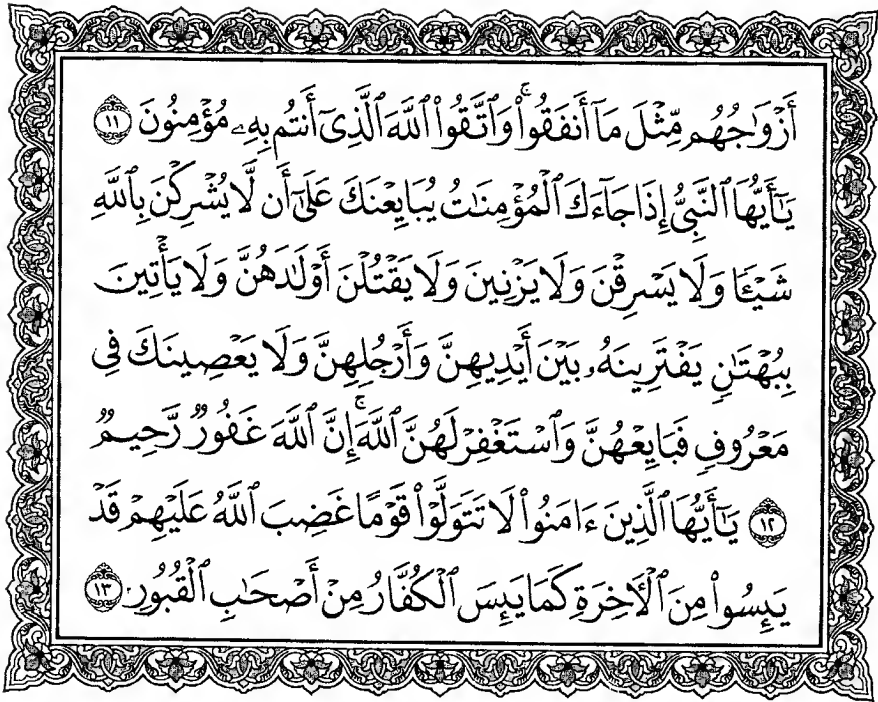 أَزۡوَٰجُهُم مِّثۡلَ مَآ أَنفَقُواْۚ وَٱتَّقُواْ ٱللَّهَ ٱلَّذِىٓ أَنتُم بِهِۦ مُؤۡمِنُونَ ١١
يَٰٓأَيُّهَا ٱلنَّبِىُّ إِذَا جَآءَكَ ٱلۡمُؤۡمِنَٰتُ يُبَايِعۡنَكَ عَلَىٰٓ أَن لَّا يُشۡرِكۡنَ بِٱللَّهِ
شَيۡـٔٗا وَلَا يَسۡرِقۡنَ وَلَا يَزۡنِينَ وَلَا يَقۡتُلۡنَ أَوۡلَٰدَهُنَّ وَلَا يَأۡتِينَ
بِبُهۡتَٰنٖ يَفۡتَرِينَهُۥ بَيۡنَ أَيۡدِيهِنَّ وَأَرۡجُلِهِنَّ وَلَا يَعۡصِينَكَ فِى
مَعۡرُوفٖ فَبَايِعۡهُنَّ وَٱسۡتَغۡفِرۡ لَهُنَّ ٱللَّهَۚ إِنَّ ٱللَّهَ غَفُورٞ رَّحِيمٞ
١٢ يَٰٓأَيُّهَا ٱلَّذِينَ ءَامَنُواْ لَا تَتَوَلَّوۡاْ قَوۡمًا غَضِبَ ٱللَّهُ عَلَيۡهِمۡ قَدۡ
يَئِسُواْ مِنَ ٱلۡأٓخِرَةِ كَمَا يَئِسَ ٱلۡكُفَّارُ مِنۡ أَصۡحَٰبِ ٱلۡقُبُورِ ١٣